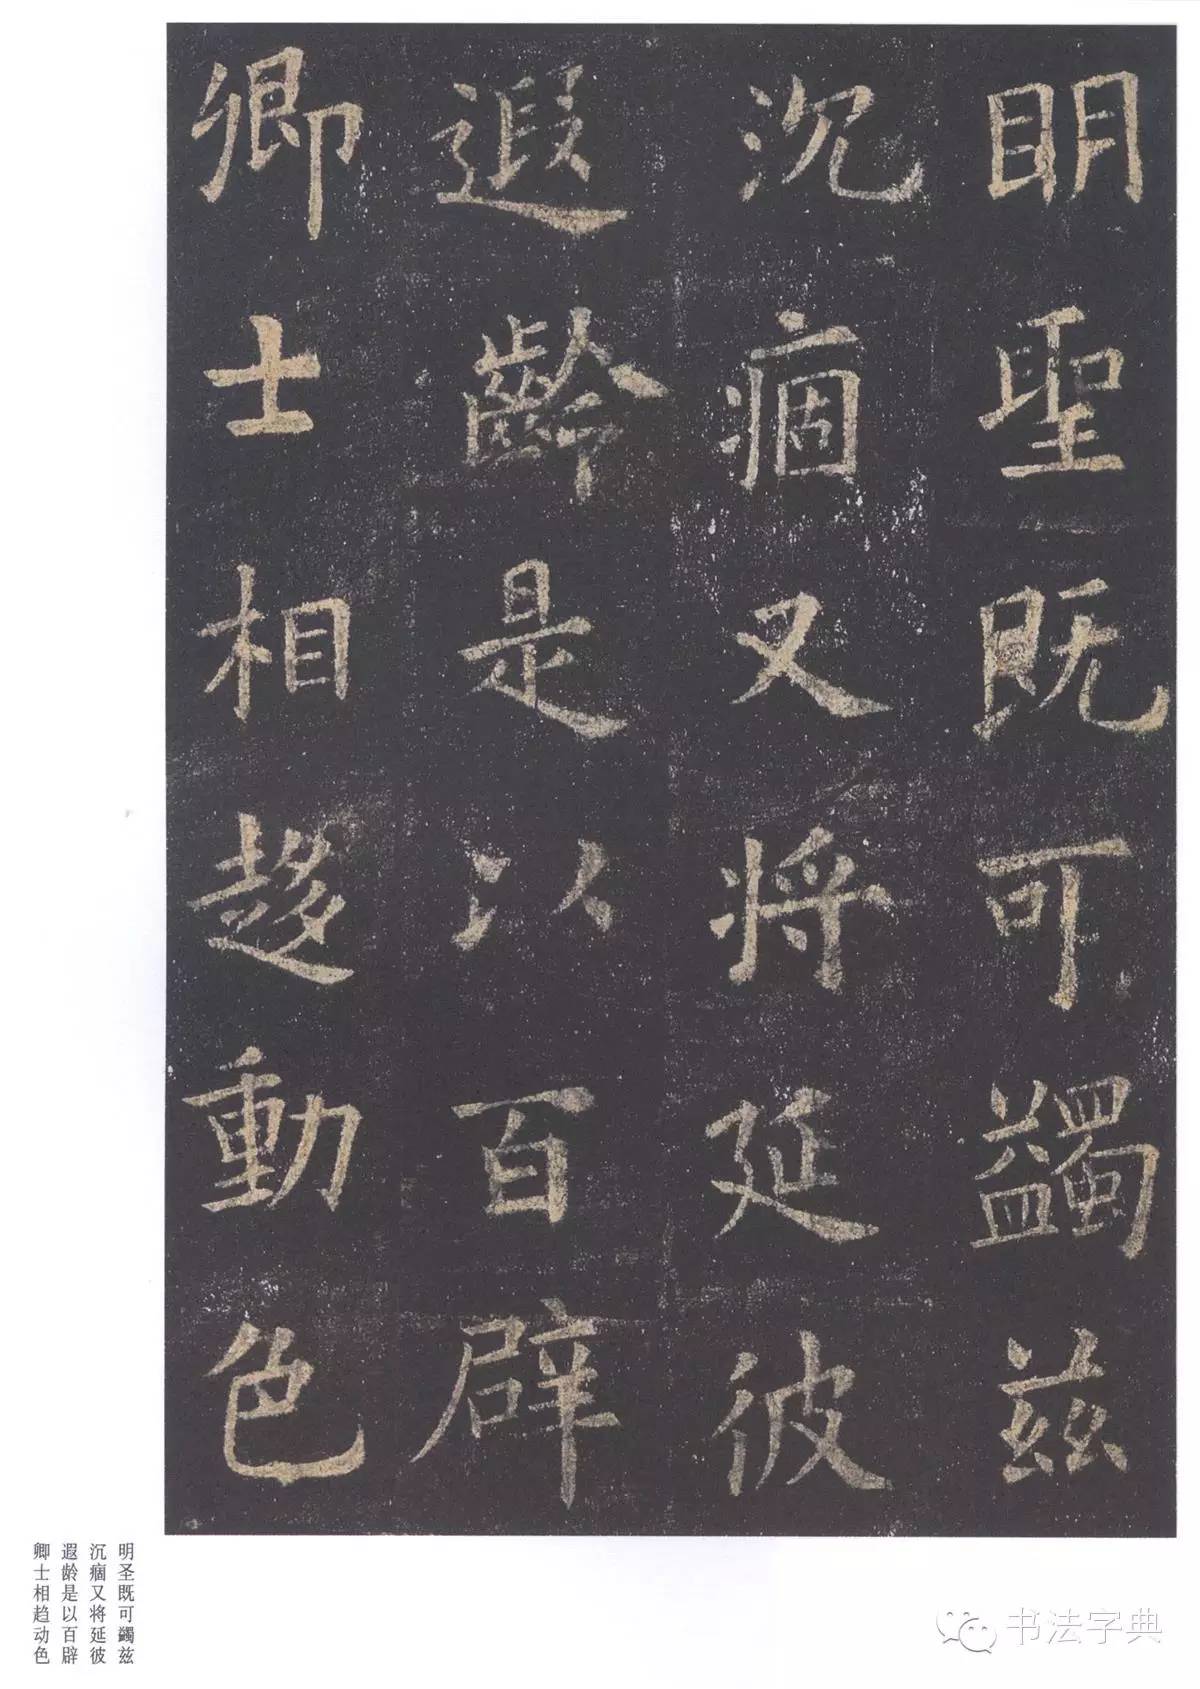 明聖既可蠲兹
沉痼又将延彼
遐齡是以百辟
卿士相趍動色
明圣既可蠲兹
沉痼又将延彼
遐龄是以百辟
卿士相趋动色
书法字典